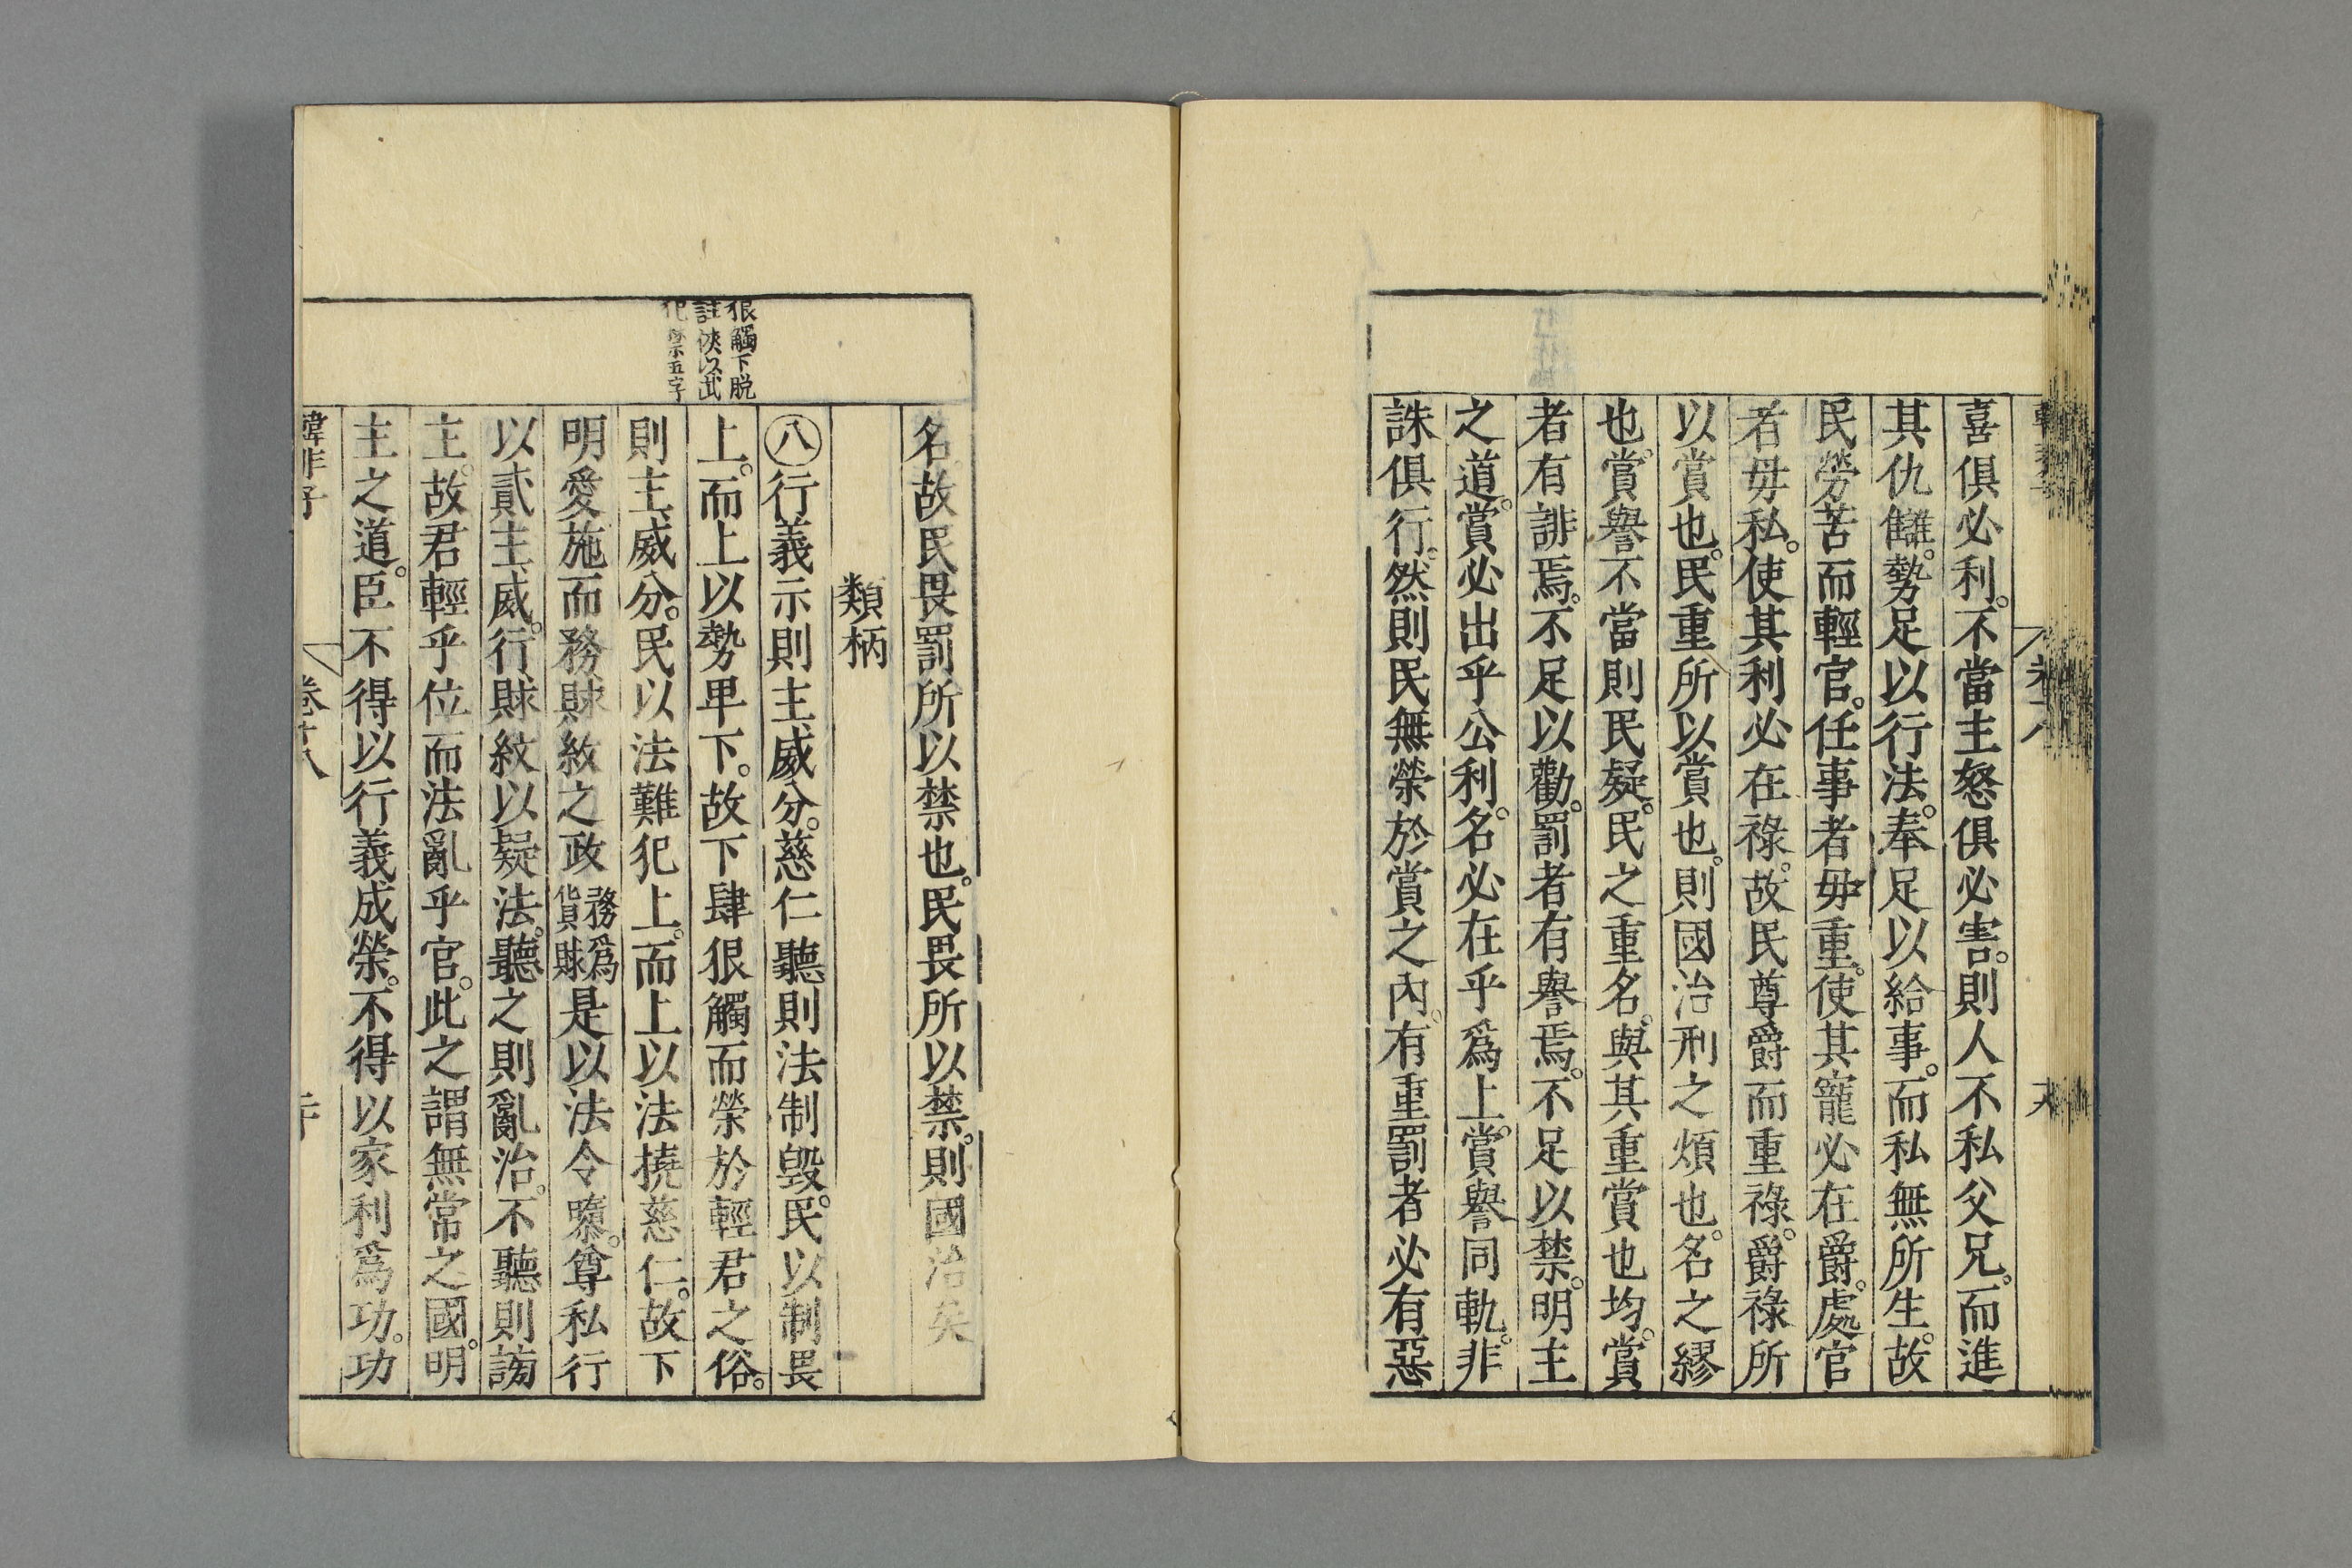 喜俱必利。不當主怒俱必害。則人不私父兄。而進
其仇讎。勢足以行法。奉足以給事。而私無所生。故
民勞苦而輕官。任事者毋重。使其寵必在爵。處官
者毋私。使其利必在祿。故民尊爵而重祿。爵祿所
以賞也。民重所以賞也。則國治刑之煩也。名之繆
也。賞譽不當則民疑。民之重名。與其重賞也均。賞
者有誹焉。不足以勸。罰者有譽焉。不足以禁。明主
之道。賞必出乎公利。名必在乎爲上。賞譽同軌。非
誅俱行。然則民無榮於賞之內。有重罰者必有惡
名。故民畏罰所以禁也。民畏所以禁。則國治矣
類柄
狠觸下脱
註俠以武
犯禁五字
㊇行義示則主威分。慈仁聽則法制毀。民以制畏
上。而上以勢卑下。故下肆狠觸而榮於輕君之俗。
則主威分。民以法難犯上。而上以法撓慈仁。故下
明愛施而務賕紋之政務爲貨賕是以法令隳。尊私行
以貳主威。行賕紋以疑法。聽之則亂治。不聽則謗
主。故君輕乎位而法亂乎官。此之謂無常之國。明
主之道。臣不得以行義成榮。不得以家利爲功。功
韓非子 卷十八